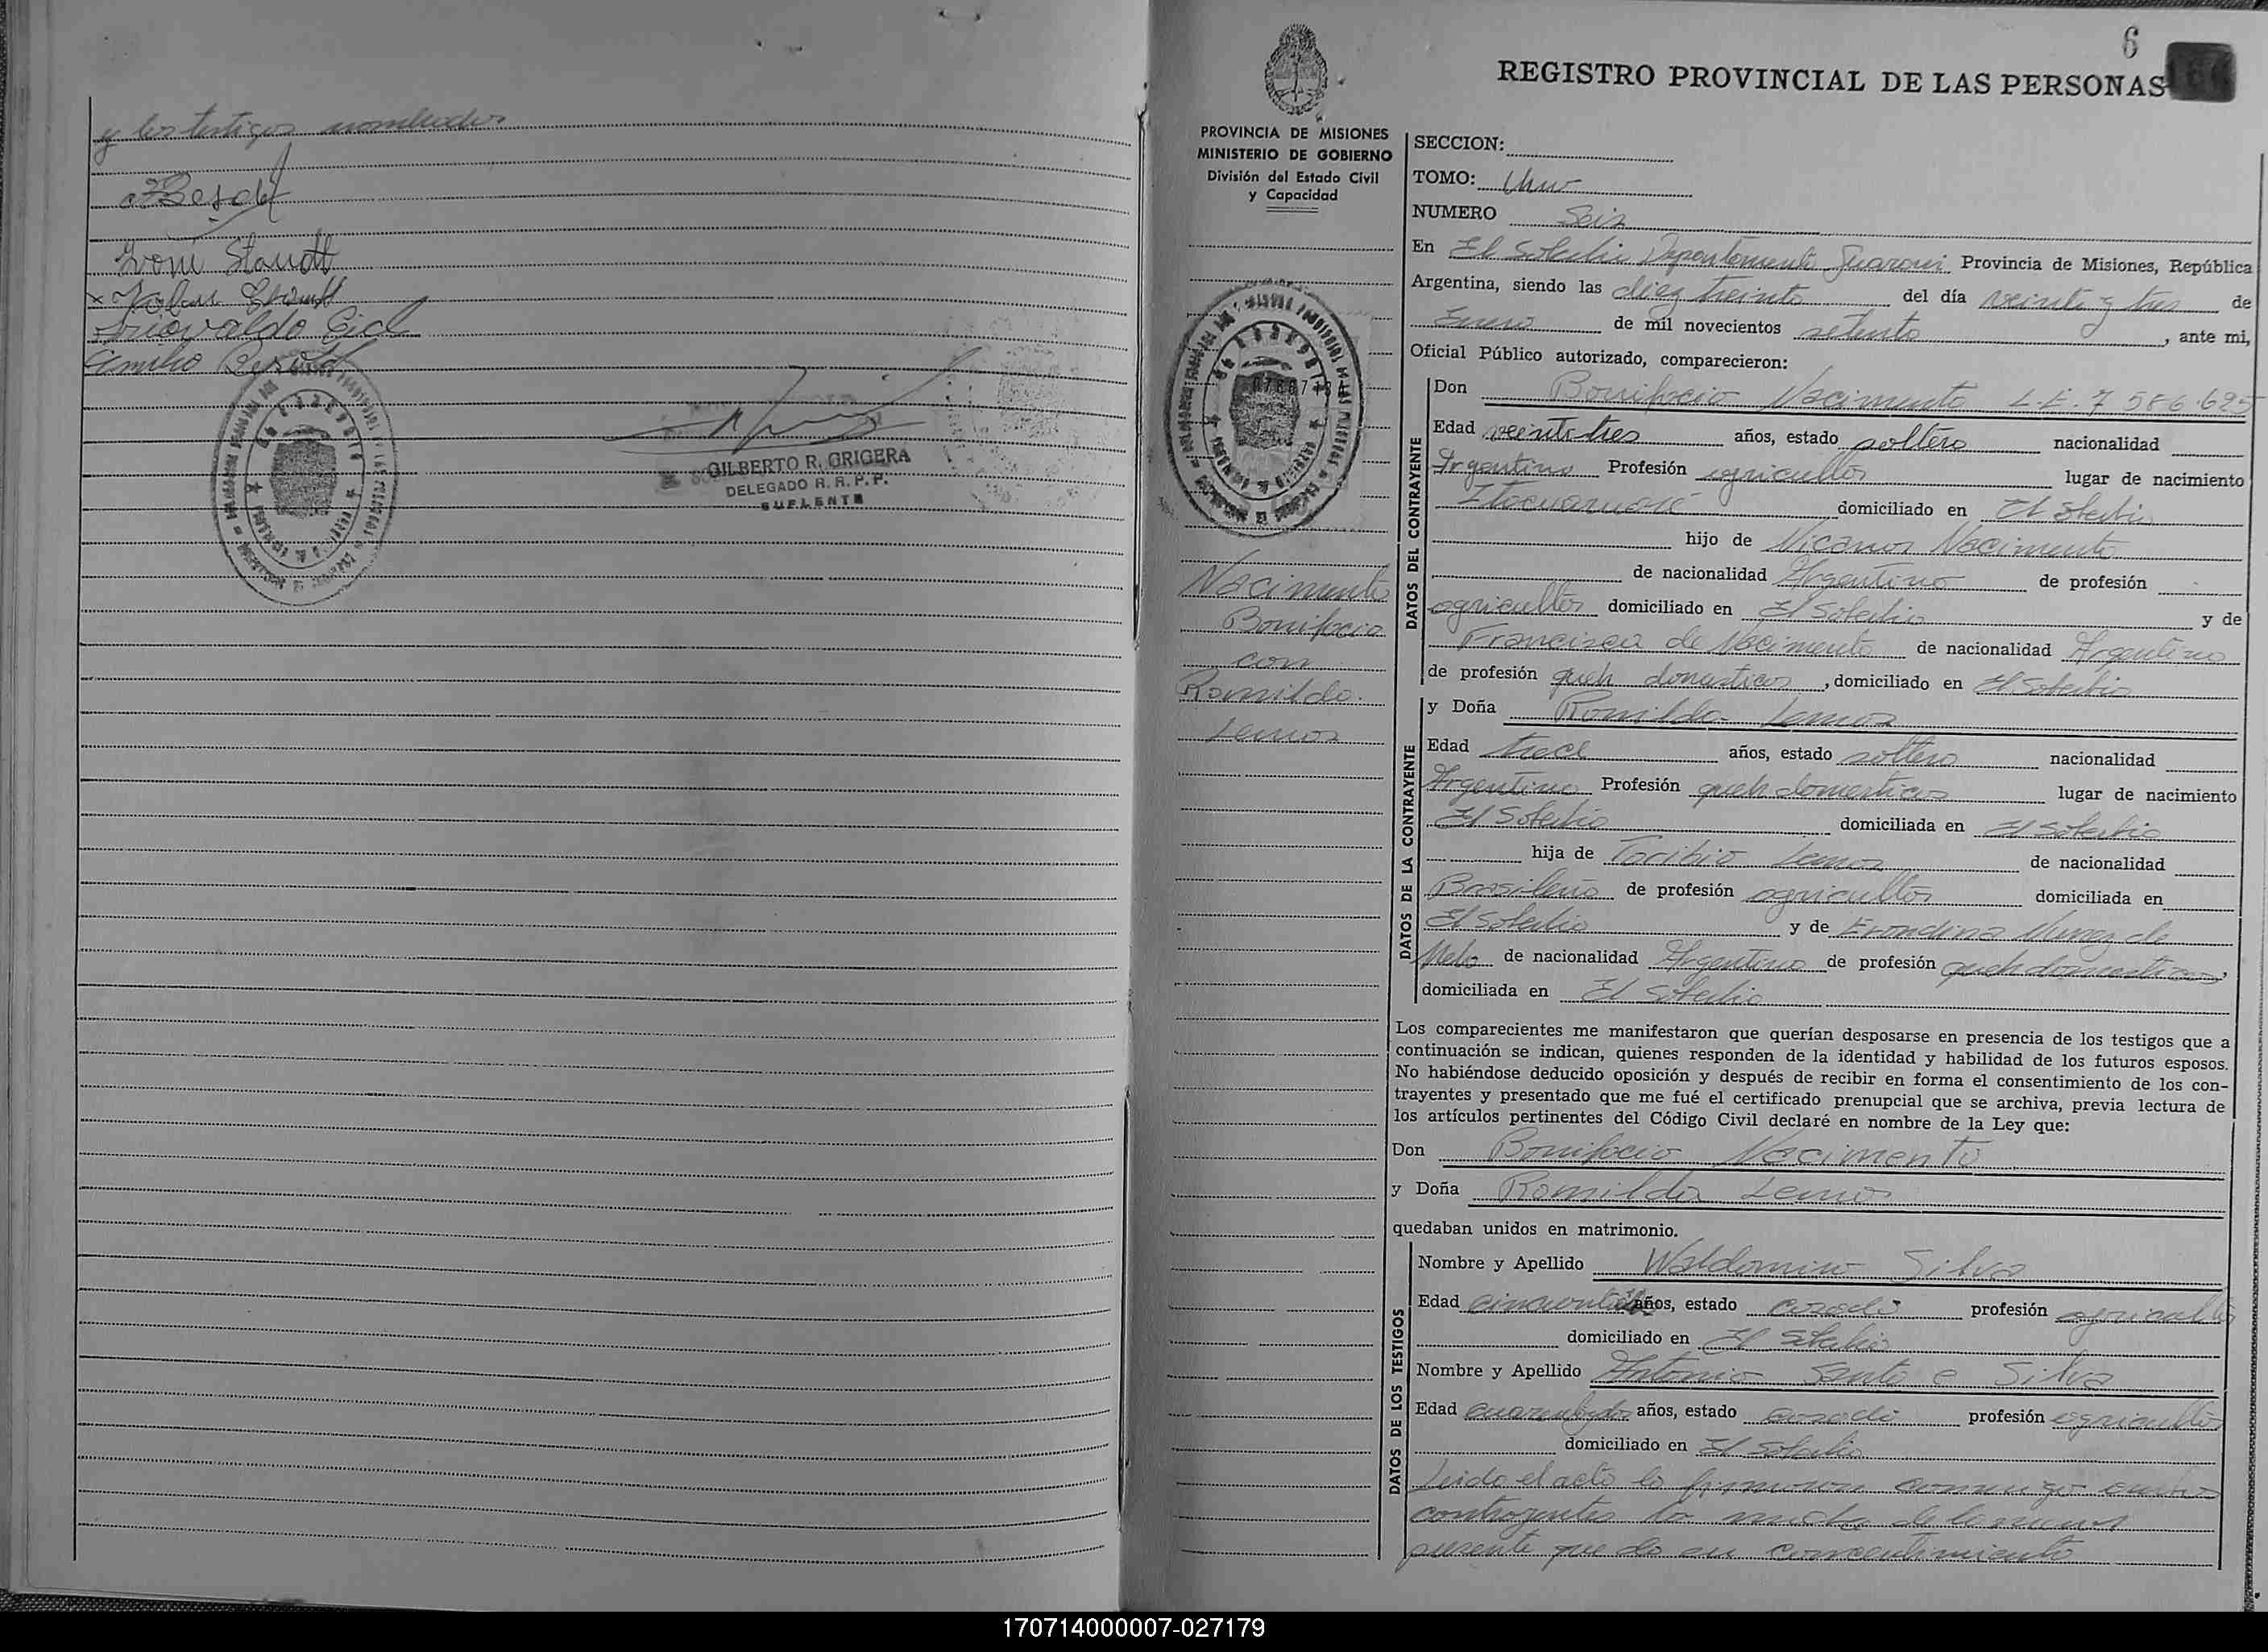 y los testigos nombrados
Ivoni Staudt
Emilio
GILBERTO R. GRIGERA
DELEGADO R. R. P. P.
SUPLENTE
6
REGISTRO PROVINCIAL DE LAS PERSONAS
PROVINCIA DE MISIONES
MINISTERIO DE GOBIERNO
División del Estado Civil
y Capacidad
Nacimento
Bonifacio
con
Romilda
Lemos
SECCION:
TOMO: Uno
NUMERO Seis
En El Soberbio Departamento Guarani Provincia de Misiones, República
Argentina, siendo las diez treinta del día veinte y tres de
Enero de mil novecientos setenta, ante mi,
Oficial Público autorizado, comparecieron:
DATOS DEL CONTRAYENTE
Don Bonifacio Nacimento L.E. 7 586.695
Edad veintitres años, estado soltero nacionalidad
Argentino Profesión agricultor lugar de nacimiento
Itacuaruaré domiciliado en El Soberbio
hijo de Nicanor Nacimento
de nacionalidad Argentino de profesión
agricultor domiciliado en El Soberbio y de
Francisca de Nacimento de nacionalidad Argentina
de profesión queh domesticos, domiciliado en El Soberbio
DATOS DE LA CONTRAYENTE
y Doña Romilda Lemos
Edad trece años, estado soltera nacionalidad
Argentina Profesión queh domesticos lugar de nacimiento
El Soberbio domiciliada en El Soberbio
hija de Toribio Lemos de nacionalidad
Brasileño de profesión agricultor domiciliada en
El Soberbio y de Erondina Nunez de
Melo de nacionalidad Argentina de profesión queh domesticos,
domiciliada en El Soberbio
Los comparecientes me manifestaron que querían desposarse en presencia de los testigos que a
continuación se indican, quienes responden de la identidad y habilidad de los futuros esposos.
No habiéndose deducido oposición y después de recibir en forma el consentimiento de los con-
trayentes y presentado que me fué el certificado prenupcial que se archiva, previa lectura de
los artículos pertinentes del Código Civil declaré en nombre de la Ley que:
Don Bonifacio Nacimento
y Doña Romilda Lemos
quedaban unidos en matrimonio.
DATOS DE LOS TESTIGOS
Nombre y Apellido Waldomiro Silva
Edad años, estado casado profesión agricultor
domiciliado en El Soberbio
Nombre y Apellido Antonio Santo e Silva
Edad cuarentaydos años, estado casado profesión agricultor
domiciliado en El Soberbio
Leida el acta la firmaron conmigo ambos
contrayentes la madre de la menor
presente que da su consentimiento
170714000007-027179